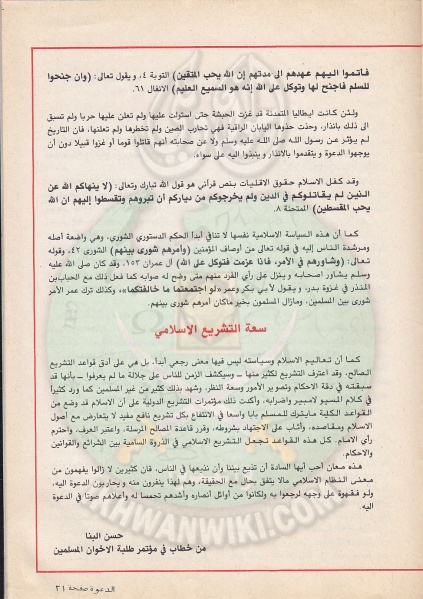 فأتموا اليهم عهدهم الى مدتهم إن الله يحب المتقين) التوبة ٤، ويقول تعالى: (وان جنحوا
للسلم فاجنح لها وتوكل على الله إنه هو السميع العليم) الانفال ٦١.
ولئن كانت ايطاليا المتمدنة قد غزت الحبشة حتى استولت عليها ولم تعلن عليها حربا ولم تسبق
الى ذلك بانذار، وحذت حذوها اليابان الراقية فهي تحارب الصين ولم تخطرها ولم تعلنها، فان التاريخ
لم يؤثر عن رسول الله صلى الله عليه وسلم ولا عن صحابته أنهم قاتلوا قوما أو غزوا قبيلا دون أن
يوجهوا الدعوة و يتقدموا بالانذار و ينبذوا اليه على سواء.
وقد كفل الاسلام حقوق الاقليات بنص قرآني هو قول الله تبارك وتعالى: (لا ينهاكم الله عن
الذين لم يقاتلوكم في الدين ولم يخرجوكم من دياركم أن تبروهم وتقسطوا إليهم ان الله
يحب المقسطين) الممتحنة ٨.
كما أن هذه السياسة الاسلامية نفسها لا تنافي أبدأ الحكم الدستوري الشورى، وهي واضعة أصله
ومرشدة الناس إليه في قوله تعالى من أوصاف المؤمنين (وأمرهم شورى بينهم) الشورى ٤٢، وقوله
تعالى: (وشاورهم في الأمر، فاذا عزمت فتوكل على الله) آل عمران ١٥٣، وقد كان صلى الله عليه
وسلم يشاور اصحابه و ينزل على رأي الفرد منهم متى وضح له صوابه كما فعل ذلك مع الحباب بن
المنذر في غزوة بدر، و يقول لأبي بكر وعمر «لو اجتمعتما ما خالفتكما»، وكذلك ترك عمر الأمر
شورى بين المسلمين، ومازال المسلمون بخير ماكان أمرهم شورى بينهم.
سعة التشريع الإسلامي
كما أن تعاليم الاسلام وسياسته ليس فيها معنى رجعي أبدأ، بل هي على أدق قواعد التشريع
الصالح، وقد اعترف التشريع لكثير منها – وسيكشف الزمن للناس على جلالة ما لم يعرفوا – بأنها قد
سبقته في دقة الاحكام وتصوير الأمور وسعة النظر، وشهد بذلك كثير من غير المسلمين كما ورد كثيراً
في كلام المسيو لامبير واضرابه، وأكدت ذلك مؤتمرات التشريع الدولية على أن الاسلام قد وضع من
القواعد الكلية مايترك للمسلم بابا واسعا في الانتفاع بكل تشريع نافع مفيد لا يتعارض مع أصول
الاسلام ومقاصده، وأثاب على الاجتهاد بشروطه، وقرر قاعدة المصالح المرسلة، واعتبر العرف، واحترم
رأي الامام، كل هذه القواعد تجعل التشريع الاسلامي في الذروة السامية بين الشرائع والقوانين
والاحكام.
هذه معان أحب أيها السادة أن تذيع بيننا وأن نذيعها في الناس، فان كثيرين لا زالوا يفهمون من
معنى النظام الاسلامي مالا يتفق بحال مع الحقيقة، وهم لهذا ينفرون منه و يحاربون الدعوة اليه،
ولو فقهوه على وجهه لرجعوا به ولكانوا من أوائل أنصاره وأشدهم تحمسا له وأعلاهم صوتا في الدعوة
اليه.
حسن البنا
من خطاب في مؤتمر طلبة الاخوان المسلمين
الدعوة صفحة ٢١
IKHWANWIKI.COM